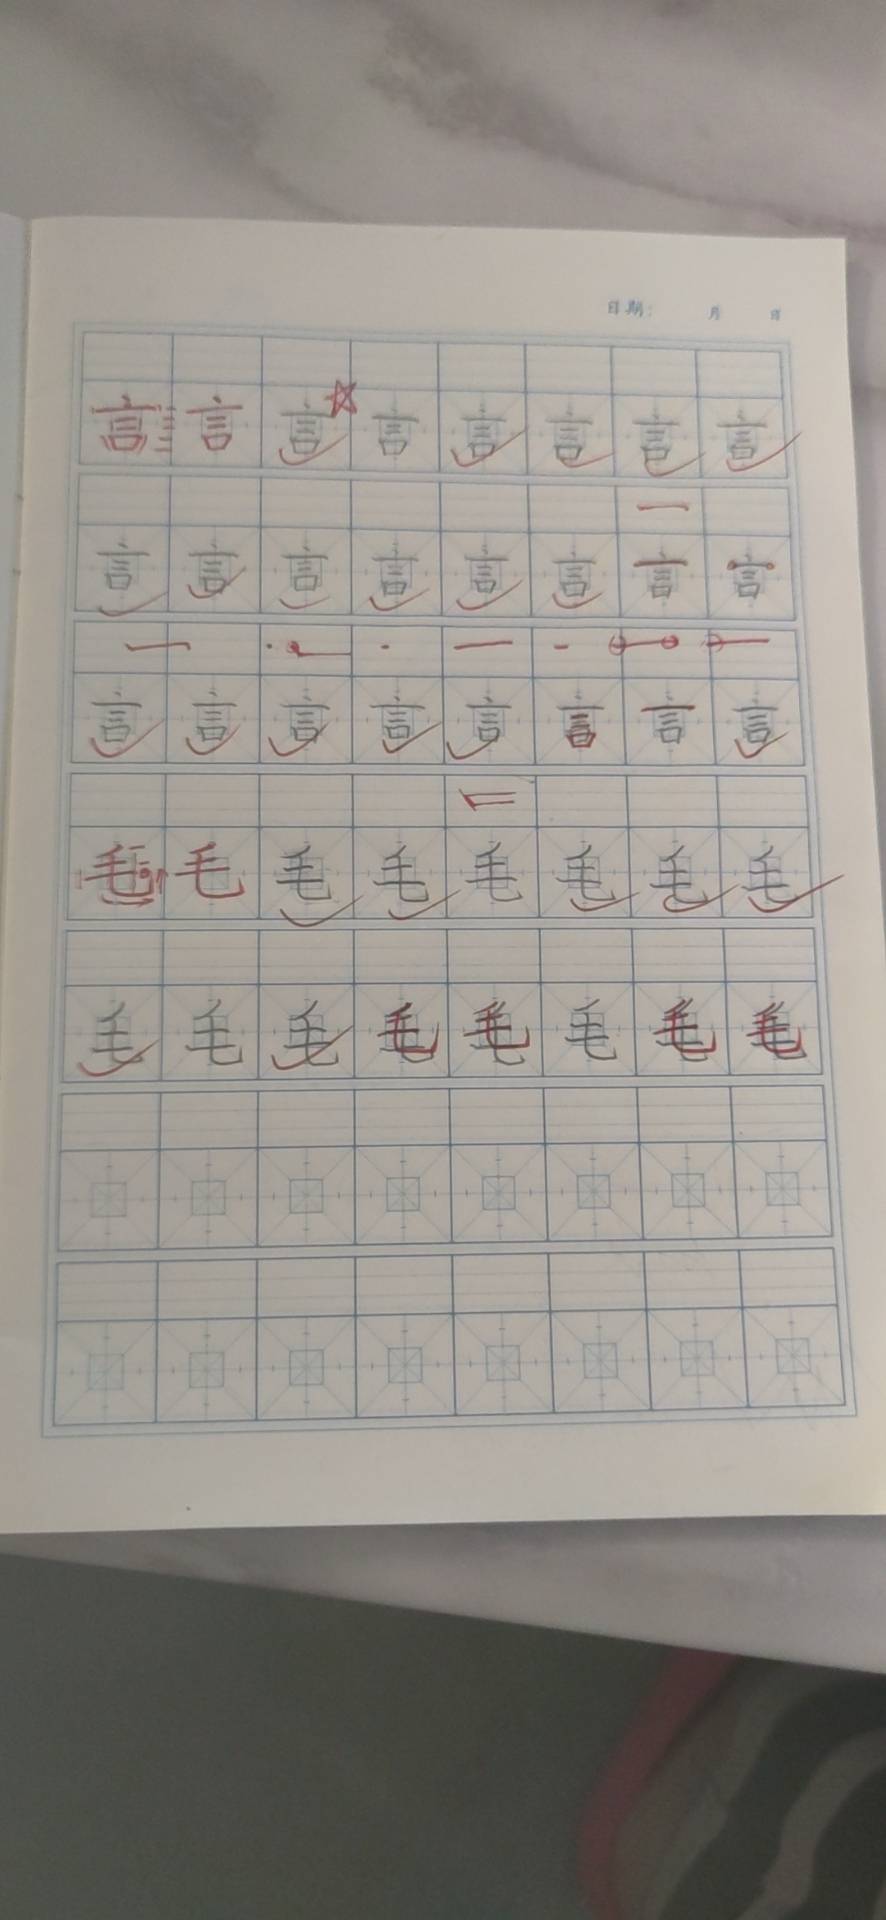 日期： 月 日
言 言 言 言 言 言 言 言
言 言 言 言 言 言 言 言
言 言 言 言 言 言 言 言
毛 毛 毛 毛 毛 毛 毛 毛
毛 毛 毛 毛 毛 毛 毛 毛